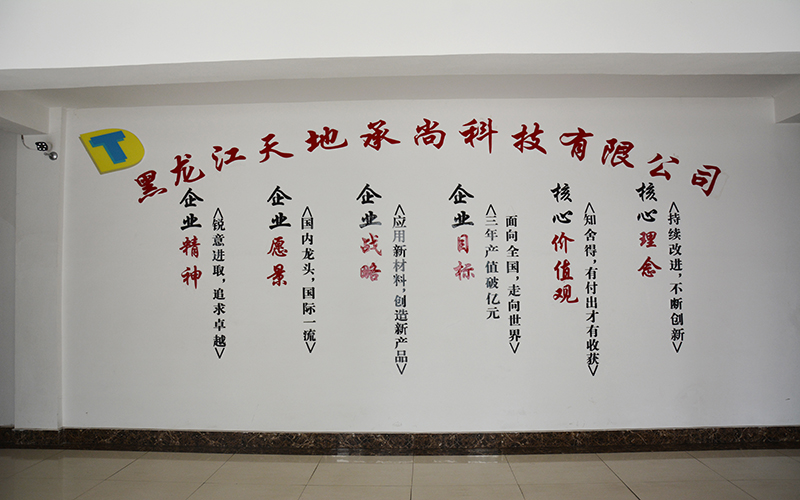 T
黑龙江天地承尚科技有限公司
企业精神
<锐意进取,追求卓越>
企业愿景
<国内龙头,国际一流>
企业战略
<应用新材料,创造新产品>
企业目标
<三年产值破亿元
面向全国,走向世界>
核心价值观
<知舍得,有付出才有收获>
核心理念
<持续改进,不断创新>